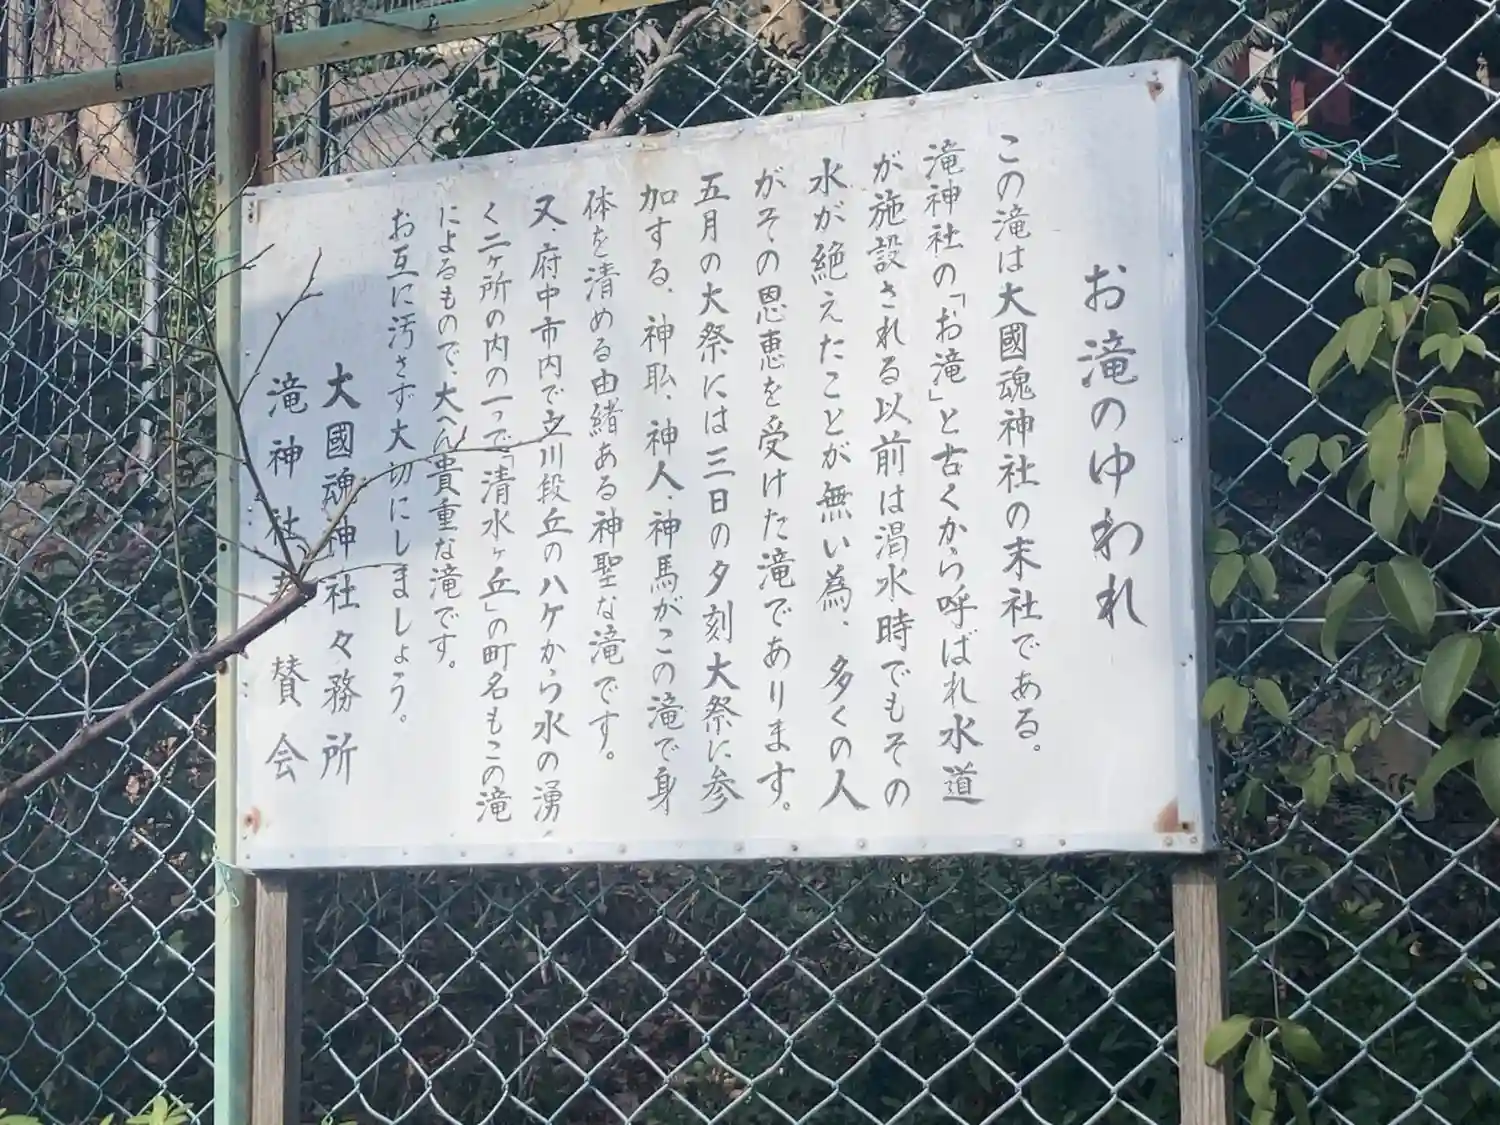 お滝のゆわれ
この滝は大國魂神社の末社である。
滝神社の「お滝」と古くから呼ばれ水道
が施設される以前は渇水時でもその
水が絶えたことが無い為、多くの人
がその恩恵を受けた滝であります。
五月の大祭には三日の夕刻大祭に参
加する、神耺、神人、神馬がこの滝で身
体を清める由緒ある神聖な滝です。
又、府中市内で立川段丘のハケから水の湧
く二ヶ所の内の一つで「清水ヶ丘」の町名もこの滝
によるもので、大へん貴重な滝です。
お互に汚さず大切にしましょう。
大國魂神社々務所
滝神社 賛会